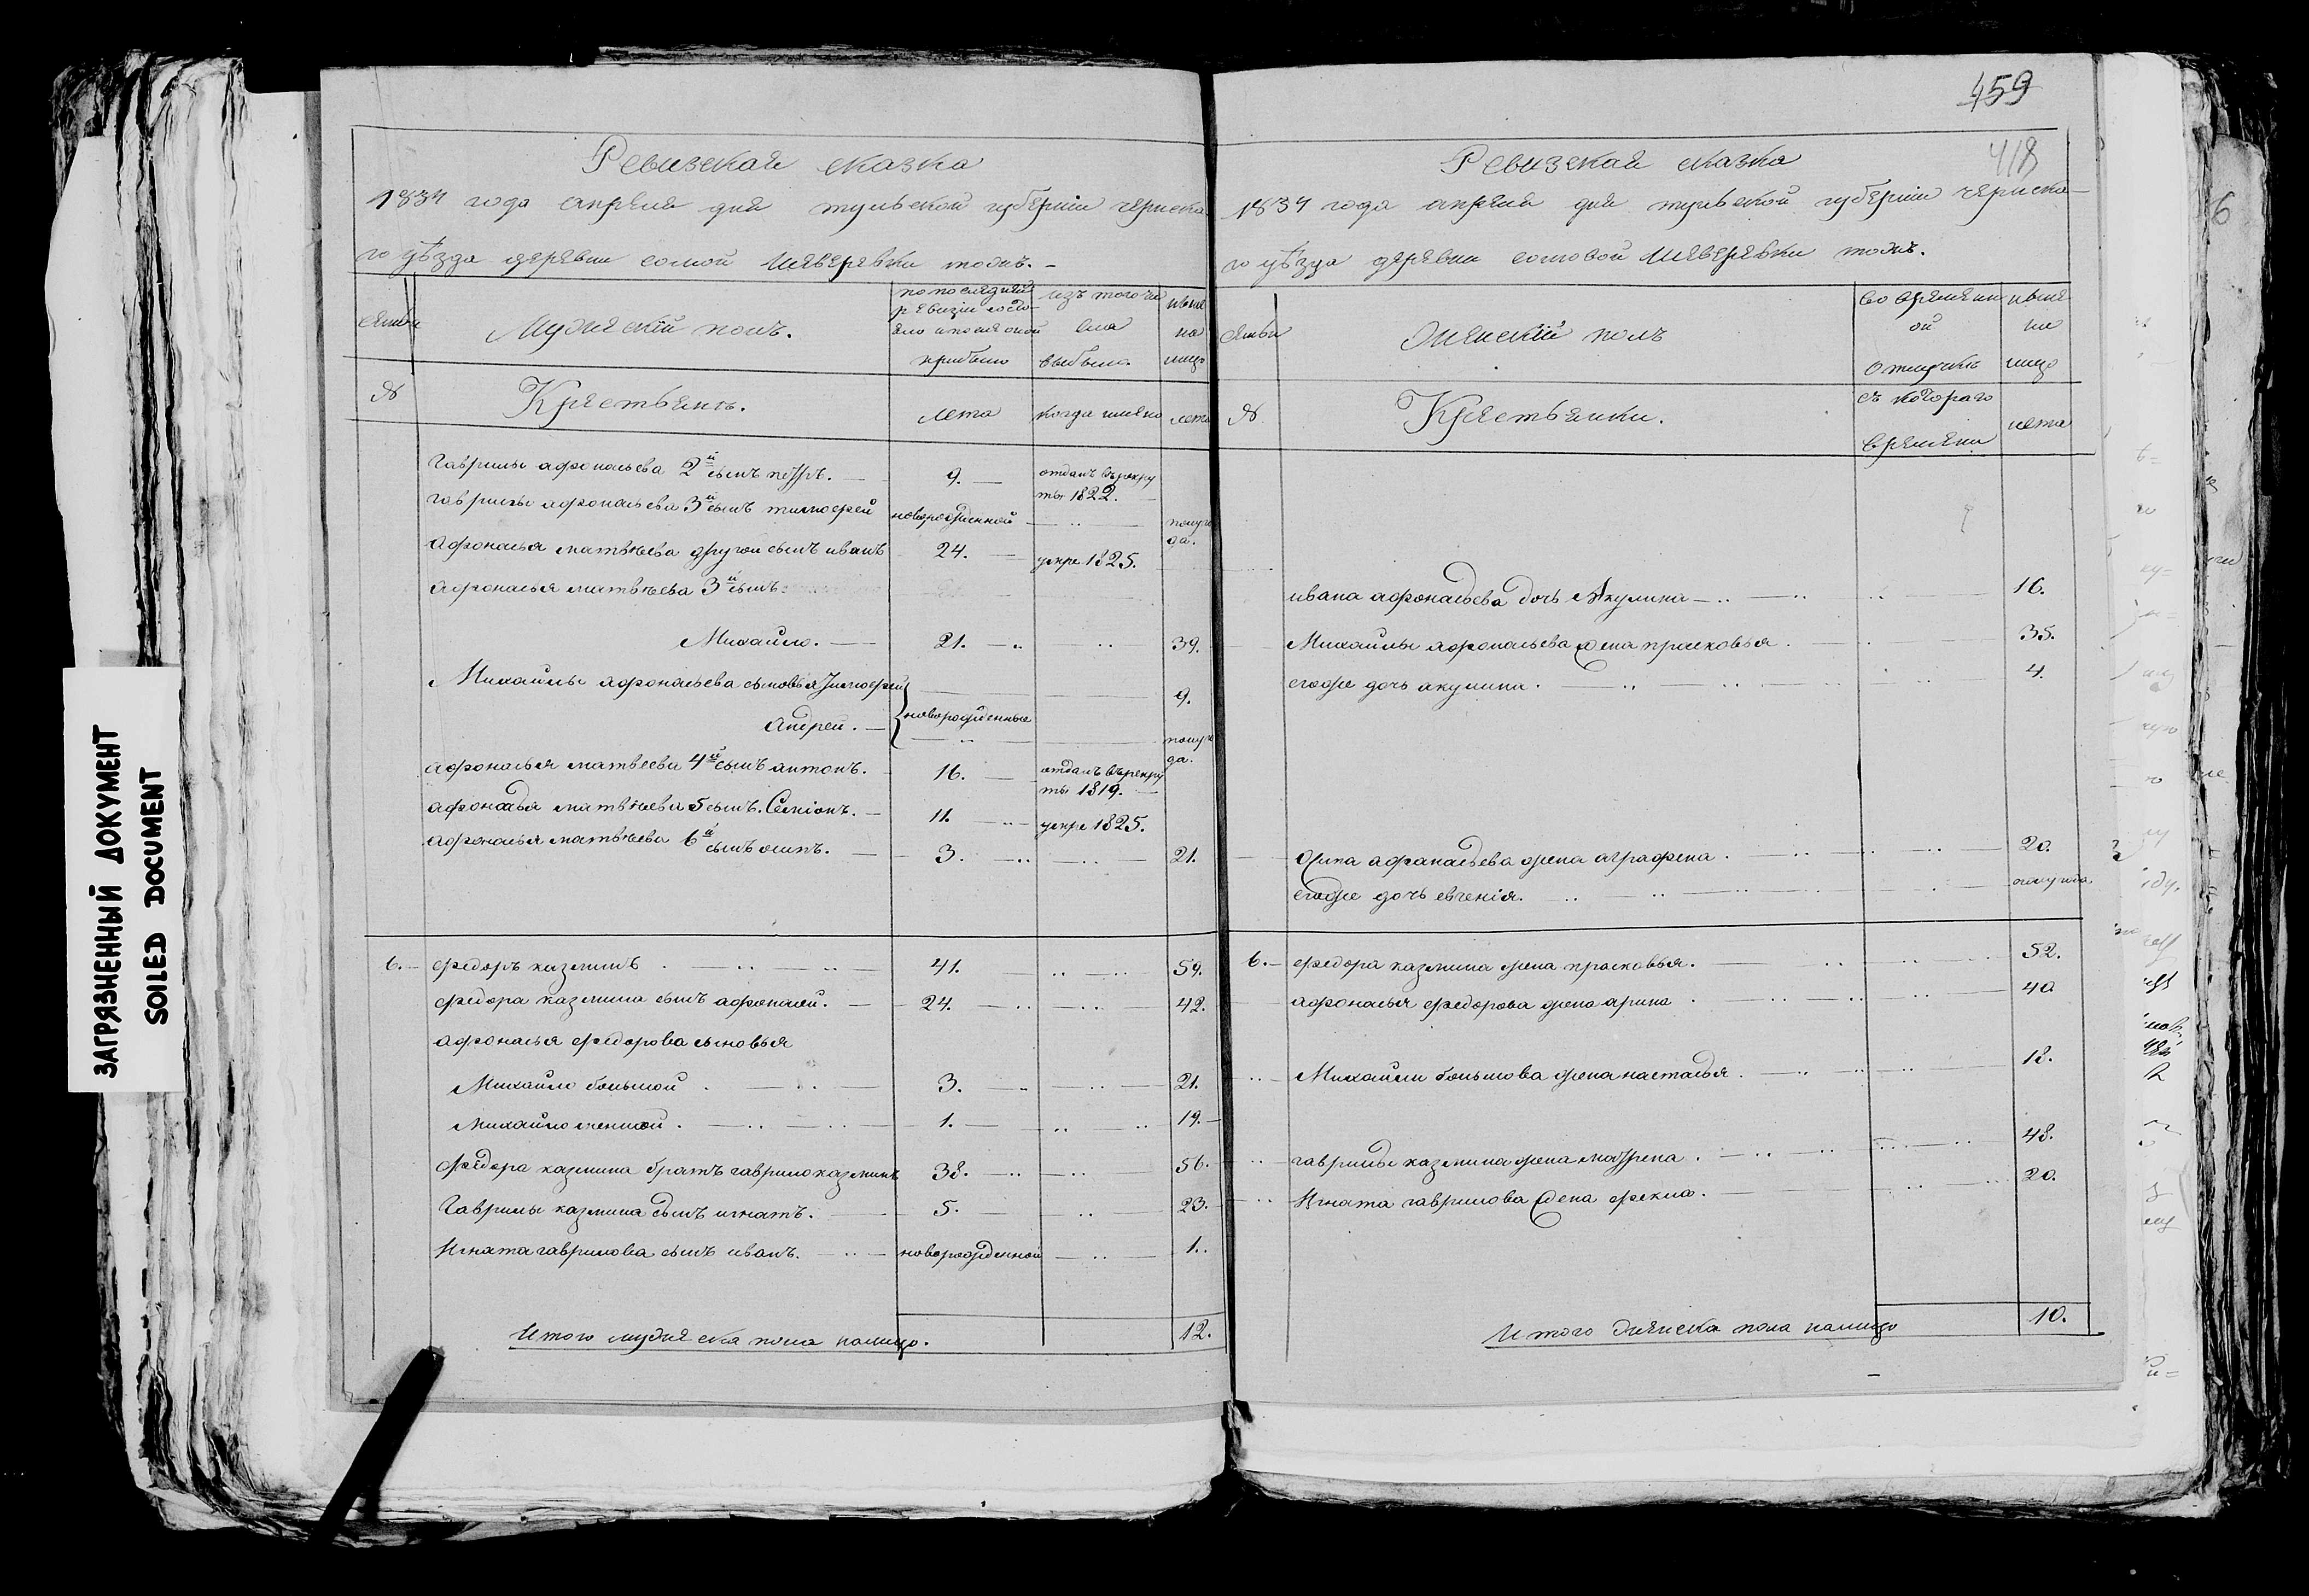 459
418
Ревизская сказка
1834 года апреля дня тульской губернии чернска
го уѣзда деревни сомовой тожъ. -
семьи
Мужескій полъ.
по последней
ревизіи состо-
яло и после оной
прибыло
изъ того чи
сла
выбыло.
ныне
на
лицо
№
Крестьянъ.
лета
когда имяно
лета
гаврилы афонасьева 2й сынъ петръ. 9. отданъ въ рекру
ты 1822.
гаврилы афонасьева 3й сынъ тимофей новорожденной полуго
да.
афонасья матвѣева другой сынъ иванъ 24. умре 1825.
афонасья матвѣева 3й сынъ
Михайло. 21. 39.
Михайлы афонасьева сыновья тимофей 9.
андрей. новорожденные полуго
да.
афонасья матвеева 4й сынъ антонъ. 16. отданъ въ рекру
ты 1819.
афонасья матвѣева 5 сынъ Семіонъ. 11. умре 1825.
афонасья матвѣева 6й сынъ осипъ. 3. 21.
6. федоръ казминъ 41. 59.
федора казмина сынъ афонасей. 24. 42.
афонасья федорова сыновья
Михайло большой 3. 21.
михайло меншой 1. 19.
федора казмина братъ гаврило казминъ 38. 56.
Гаврилы казмина сынъ игнатъ. 5. 23.
Игната гаврилова сынъ иванъ. новорожденной 1.
Итого мужеска пола налицо. 12.
Ревизская сказка
1834 года апреля дня тульской губерніи чернска
го уѣзда деревни сомовой тожъ.
семьи
Женскій полъ
во временн
ой
отлучкѣ
ныне
на
лицо
№
Крестьянки.
съ котораго
времени
лета
ивана афонасьева дочь Акулина 16.
Михайлы афонасьева жена прасковья 35.
егоже дочь акулина. 4.
осипа афанасьева жена аграфена. 20.
егоже дочь евгенія. полугода
6. федора казмина жена прасковья. 52.
афонасья федорова жена арина 40
Михайли большова жена настасья. 18.
гаврилы казмина жена матрена. 48.
Игната гаврилова жена фекла. 20.
Итого женска пола налицо 10.
ЗАГРЯЗНЕННЫЙ ДОКУМЕНТ
SOILED DOCUMENT